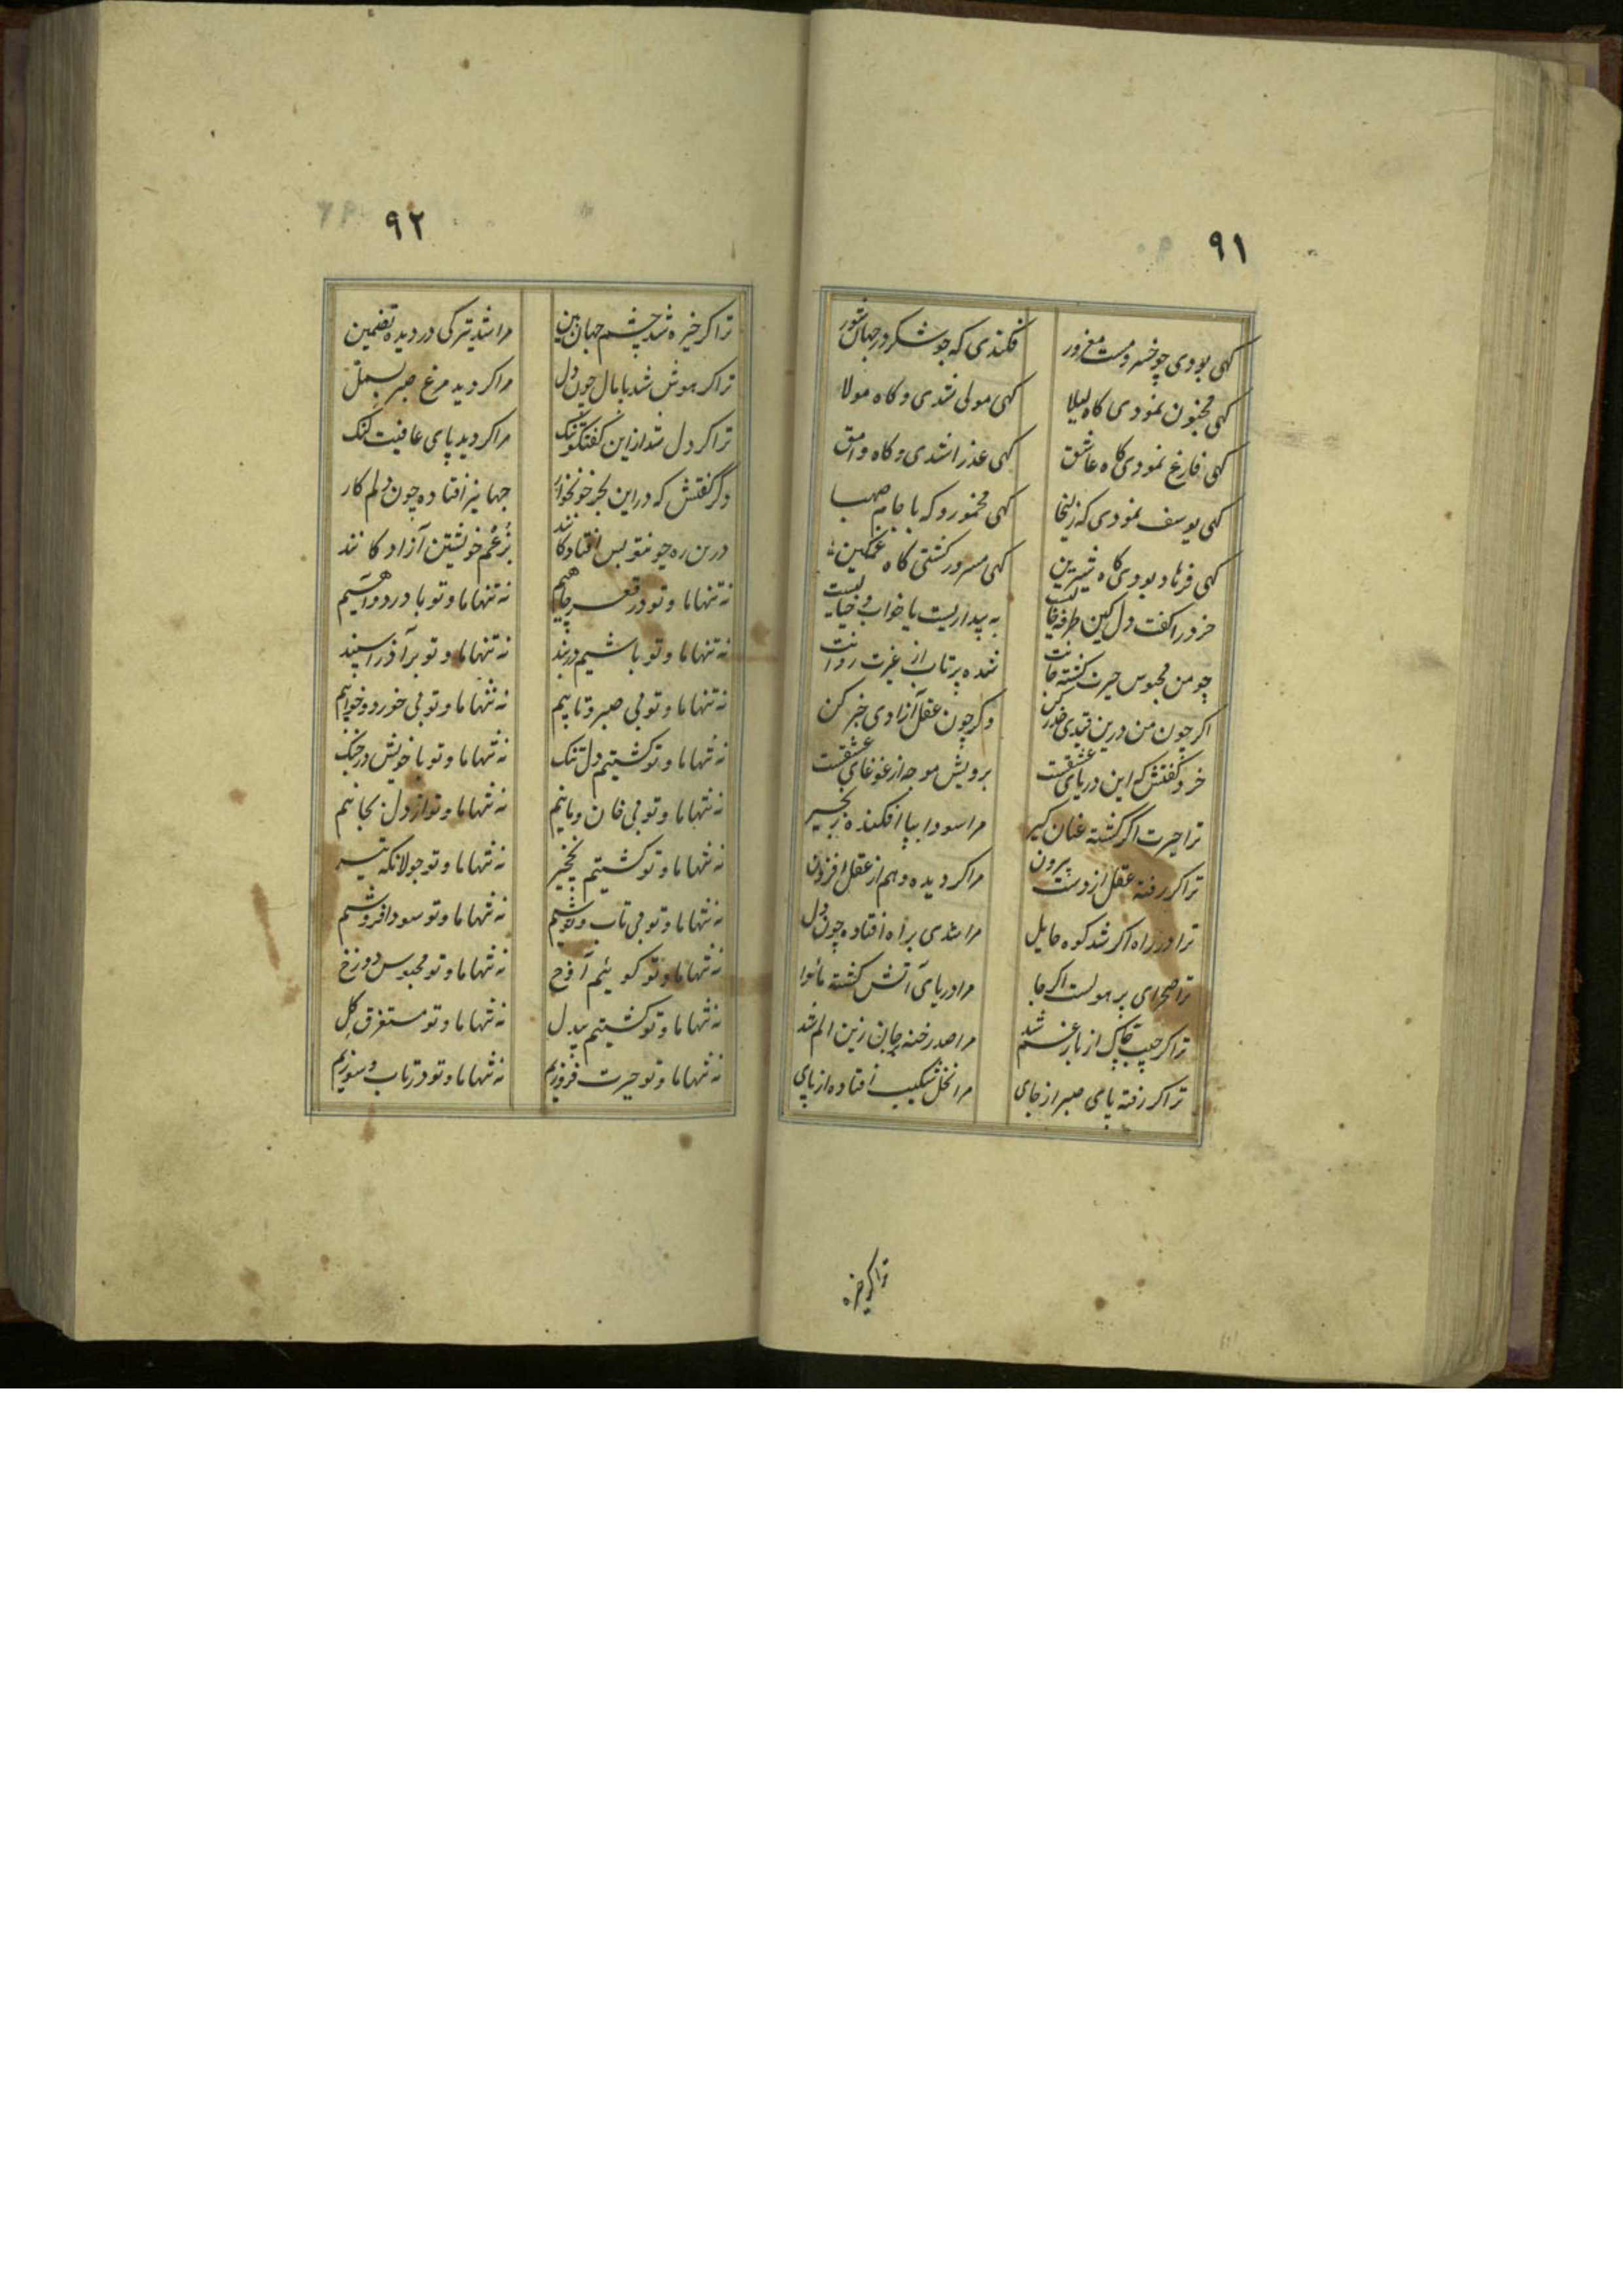 ۹۱
گهی بودی چو خسرو مست مغرور فکندی که چو شکر در جهان شور
گهی مجنون نمودی کاه لیلا گهی مولی شدی و کاه مولا
گهی فارغ نمودی کاه عاشق گهی عذرا شدی و کاه وامق
گهی یوسف نمودی که زلیخا گهی مخمور و که با جام صهبا
گهی فرهاد بودی کاه شیرین گهی مسرور کشتی کاه غمکین
خرد را کفت دل کین طرفه به بیداریست یا خواب و خیالیست
چو من محبوس حیرت کشته جانت شده پرتاب از غیرت روانت
اکر چون من درین قیدی حذر کن وکر چون عقل آزادی خبر کن
خرد کفتش که این دریای عشقست برویش موجه از غوغای عشقست
ترا حیرت اکر کشته عنان کیر مرا سودا بپا افکنده زنجیر
ترا کر رفته عقل از دست بیرون مرا کردیده وهم از عقل افزون
ترا در راه اکر شد کوه حایل مرا سدی براه افتاده چون دل
ترا صحرای پر هولست اکر جا مرا دریای آتش کشته مأوا
ترا کر جیب چاک از بار غم شد مرا صد رخنه بجان زین الم شد
ترا کر رفته پای صبر از جای مرا نخل شکیب افتاده از پای
ترا کر خیره
۹۲
ترا کر خیره شد چشم جهان بین مرا شد تیرکی در دیده تضمین
ترا کر هوش شد پامال چون دل مرا کردید مرغ صبر بسمل
ترا کر دل شد از این کفتکو تنک مرا کردید پای عافیت لنک
وکر کفتش که در این بحر خونخوار جهانیرا فتاده چون دلم کار
درین ره چو نتو بس افتادکانند بزعم خویشتن آزادکانند
نه تنها ما و تو در قعر چاهیم نه تنها ما و تو با درد و آهیم
نه تنها ما و تو باشیم در بند نه تنها ما و تو بر آذر اسپند
نه تنها ما و تو بی صبر و تابیم نه تنها ما و تو بی خورد و خوابیم
نه تنها ما و تو کشتیم دل تنک نه تنها ما و تو با خویش در جنک
نه تنها ما و تو بی خان و مانیم نه تنها ما و تو از دل بجانیم
نه تنها ما و تو کشتیم نخچیر نه تنها ما و تو جولانکه تیر
نه تنها ما و تو بی تاب و توشیم نه تنها ما و تو سودا فروشیم
نه تنها ما و تو کوئیم آوخ نه تنها ما و تو محبوس دوزخ
نه تنها ما و تو کشتیم بیدل نه تنها ما و تو مستغرق کل
نه تنها ما و تو حیرت فروزیم نه تنها ما و تو در تاب و سوزیم